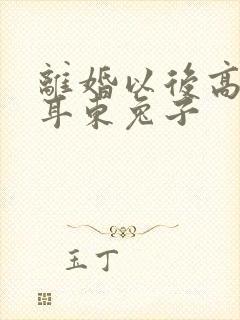 離婚以後高
耳東兔子
玉丁